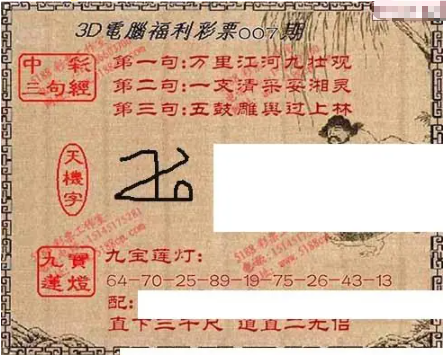 3D電腦福利彩票007期
中彩
三句經
第一句:万里江河九壮观
第二句:一支清采妥湘灵
第三句:五鼓雕與过上林
天機字
九寶
蓮燈
九宝莲灯:
64-70-25-89-19-75-26-43-13
配:
直下三千尺 道直二九倍